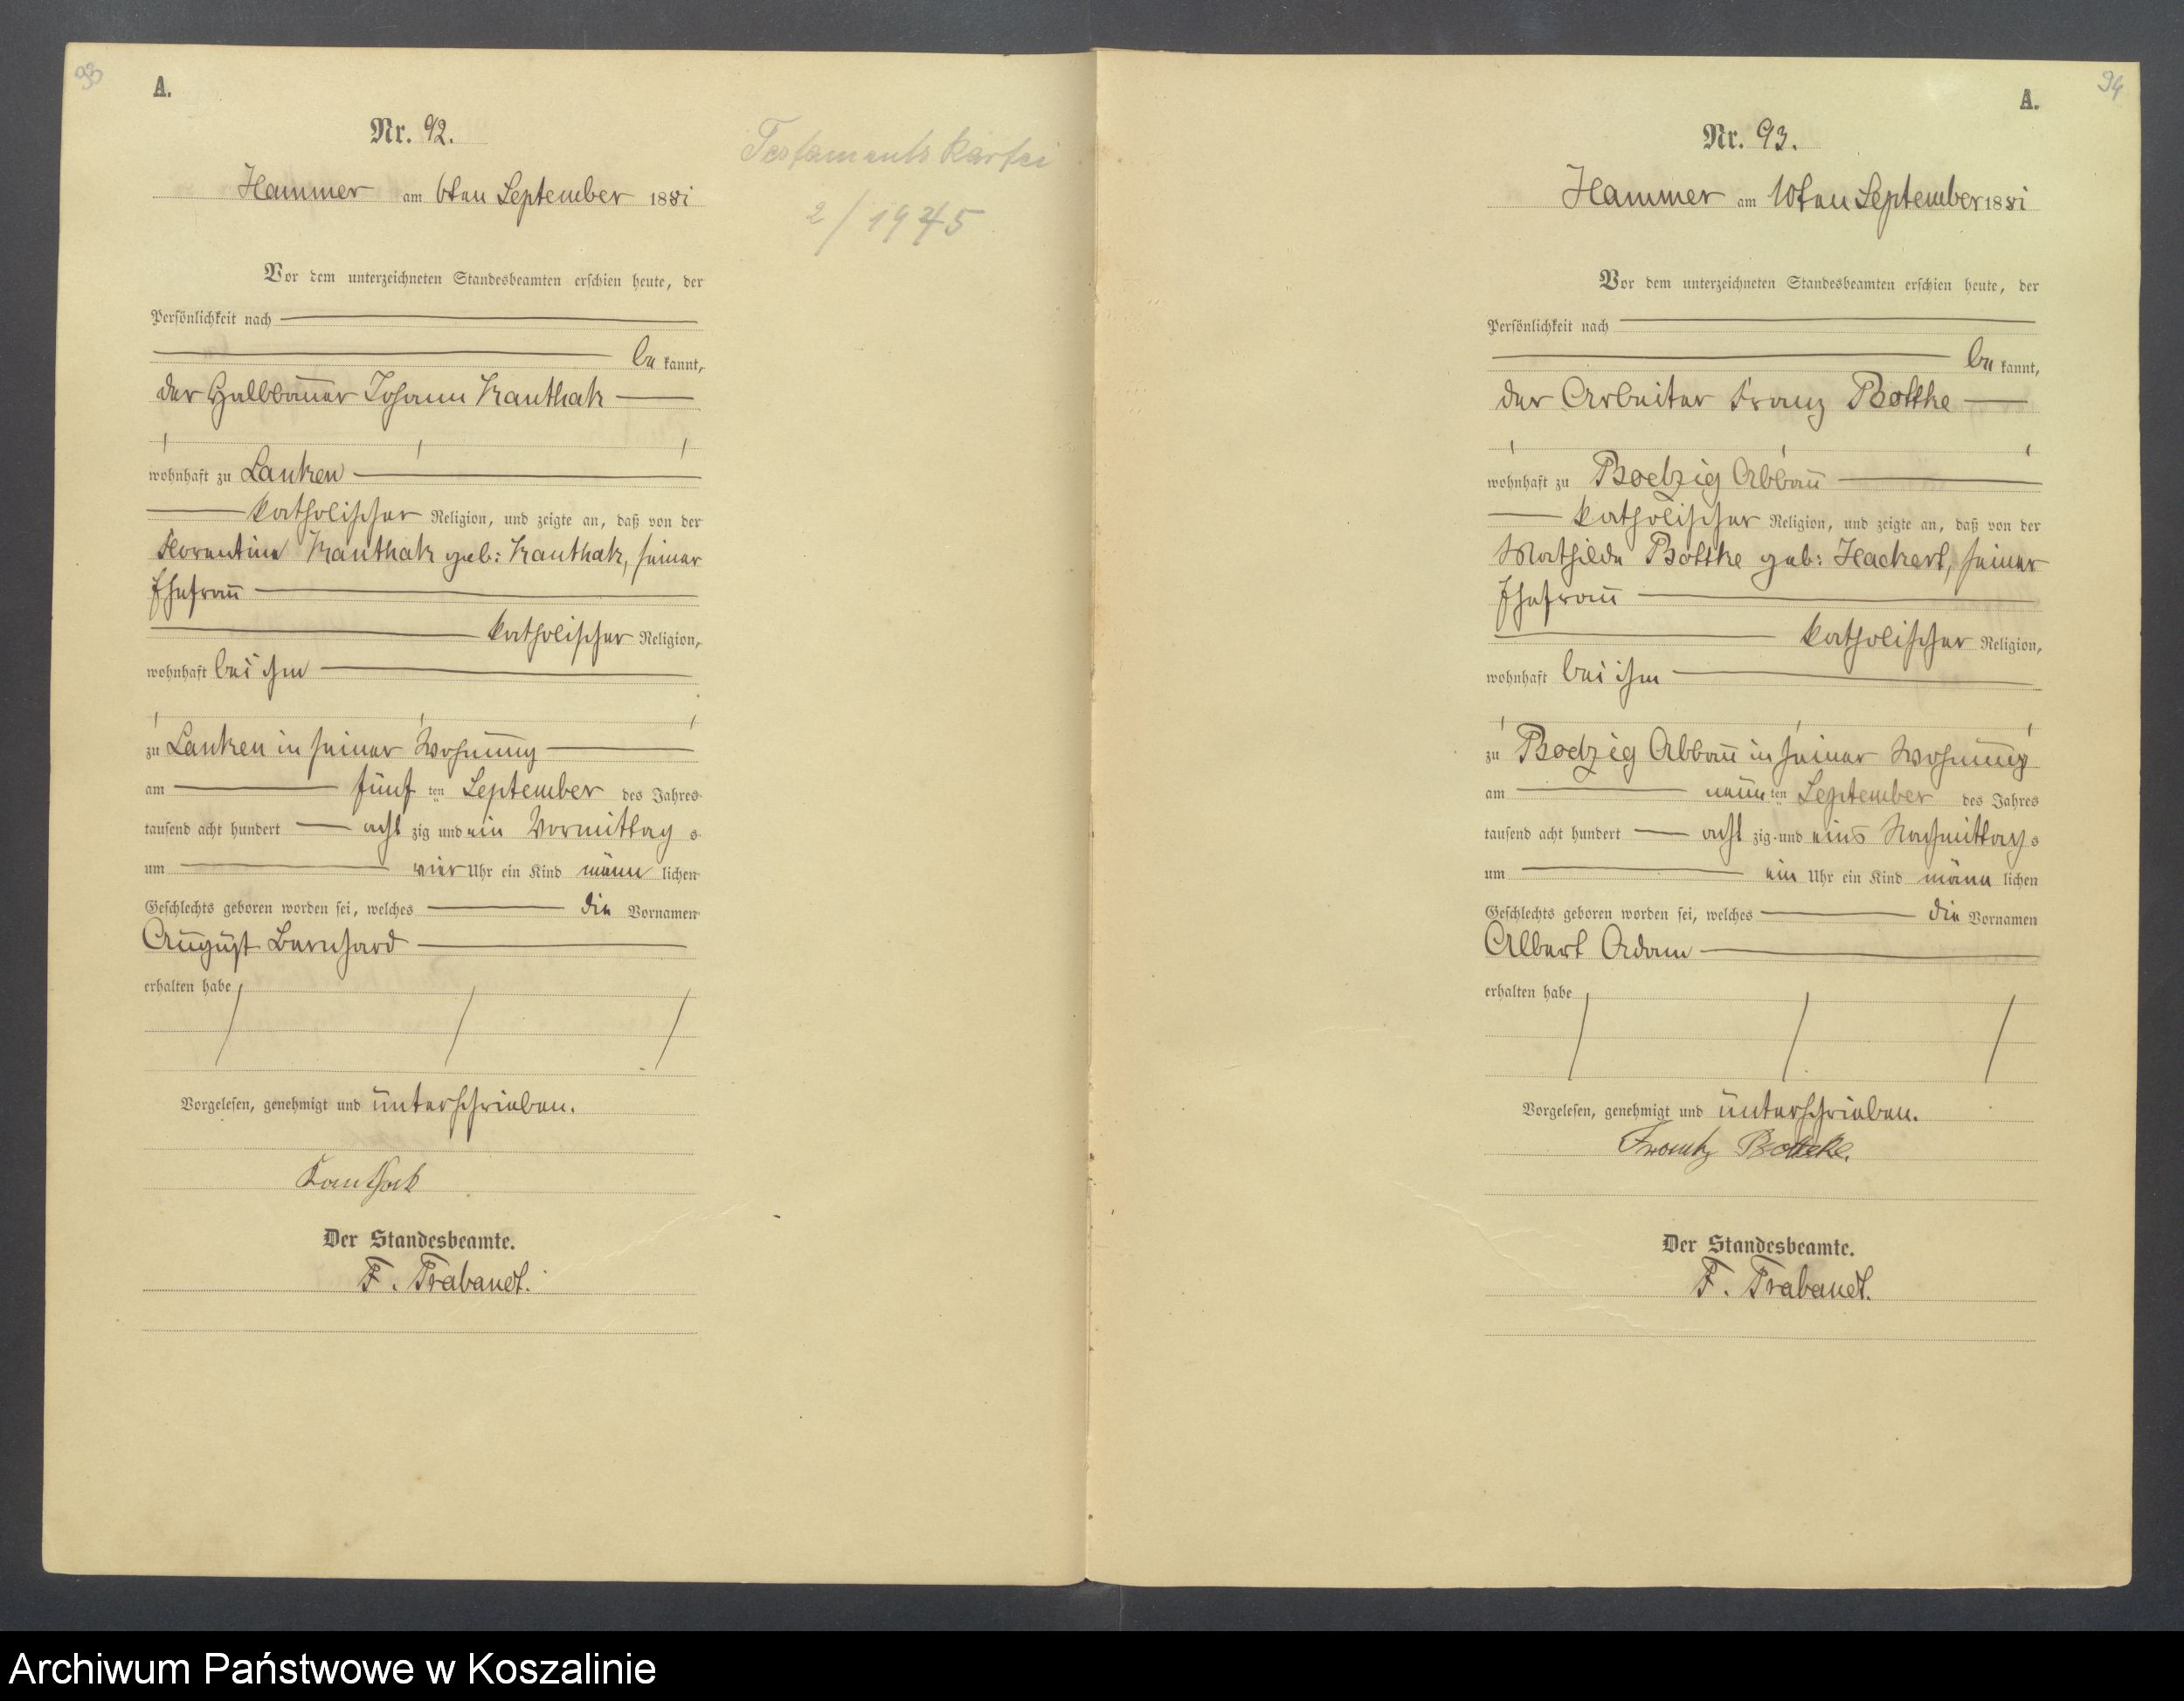 93
A.
Nr. 92.
Hammer am 6ten September 1881
Testaments Kartei
2/1945
Vor dem unterzeichneten Standesbeamten erschien heute, der
Persönlichkeit nach
be kannt,
der Halbbauer Johann Kanthak
wohnhaft zu Lanken
katholischer Religion, und zeigte an, daß von der
Florentine Kanthak geb: Kanthak, seiner
Ehefrau
katholischer Religion,
wohnhaft bei ihm
zu Lanken in seiner Wohnung
am fünf ten September des Jahres
tausend acht hundert acht zig und ein Vormittag s
um vier Uhr ein Kind männ lichen
Geschlechts geboren worden sei, welches die Vornamen
August Bernhard
erhalten habe
Vorgelesen, genehmigt und unterschrieben.
Kanthak
Der Standesbeamte.
F. Trabandt.
94
A.
Nr. 93.
Hammer am 10ten September 1881
Vor dem unterzeichneten Standesbeamten erschien heute, der
Persönlichkeit nach
be kannt,
der Arbeiter Franz Bottke
wohnhaft zu Boelzig Abbau
katholischer Religion, und zeigte an, daß von der
Mathilde Bottke geb: Hackert, seiner
Ehefrau
katholischer Religion,
wohnhaft bei ihm
zu Boelzig Abbau in seiner Wohnung
am neun ten September des Jahres
tausend acht hundert acht zig und eins Nachmittag s
um ein Uhr ein Kind männ lichen
Geschlechts geboren worden sei, welches die Vornamen
Albert Adam
erhalten habe
Vorgelesen, genehmigt und unterschrieben.
Frantz Bottcke.
Der Standesbeamte.
F. Trabandt.
Archiwum Państwowe w Koszalinie